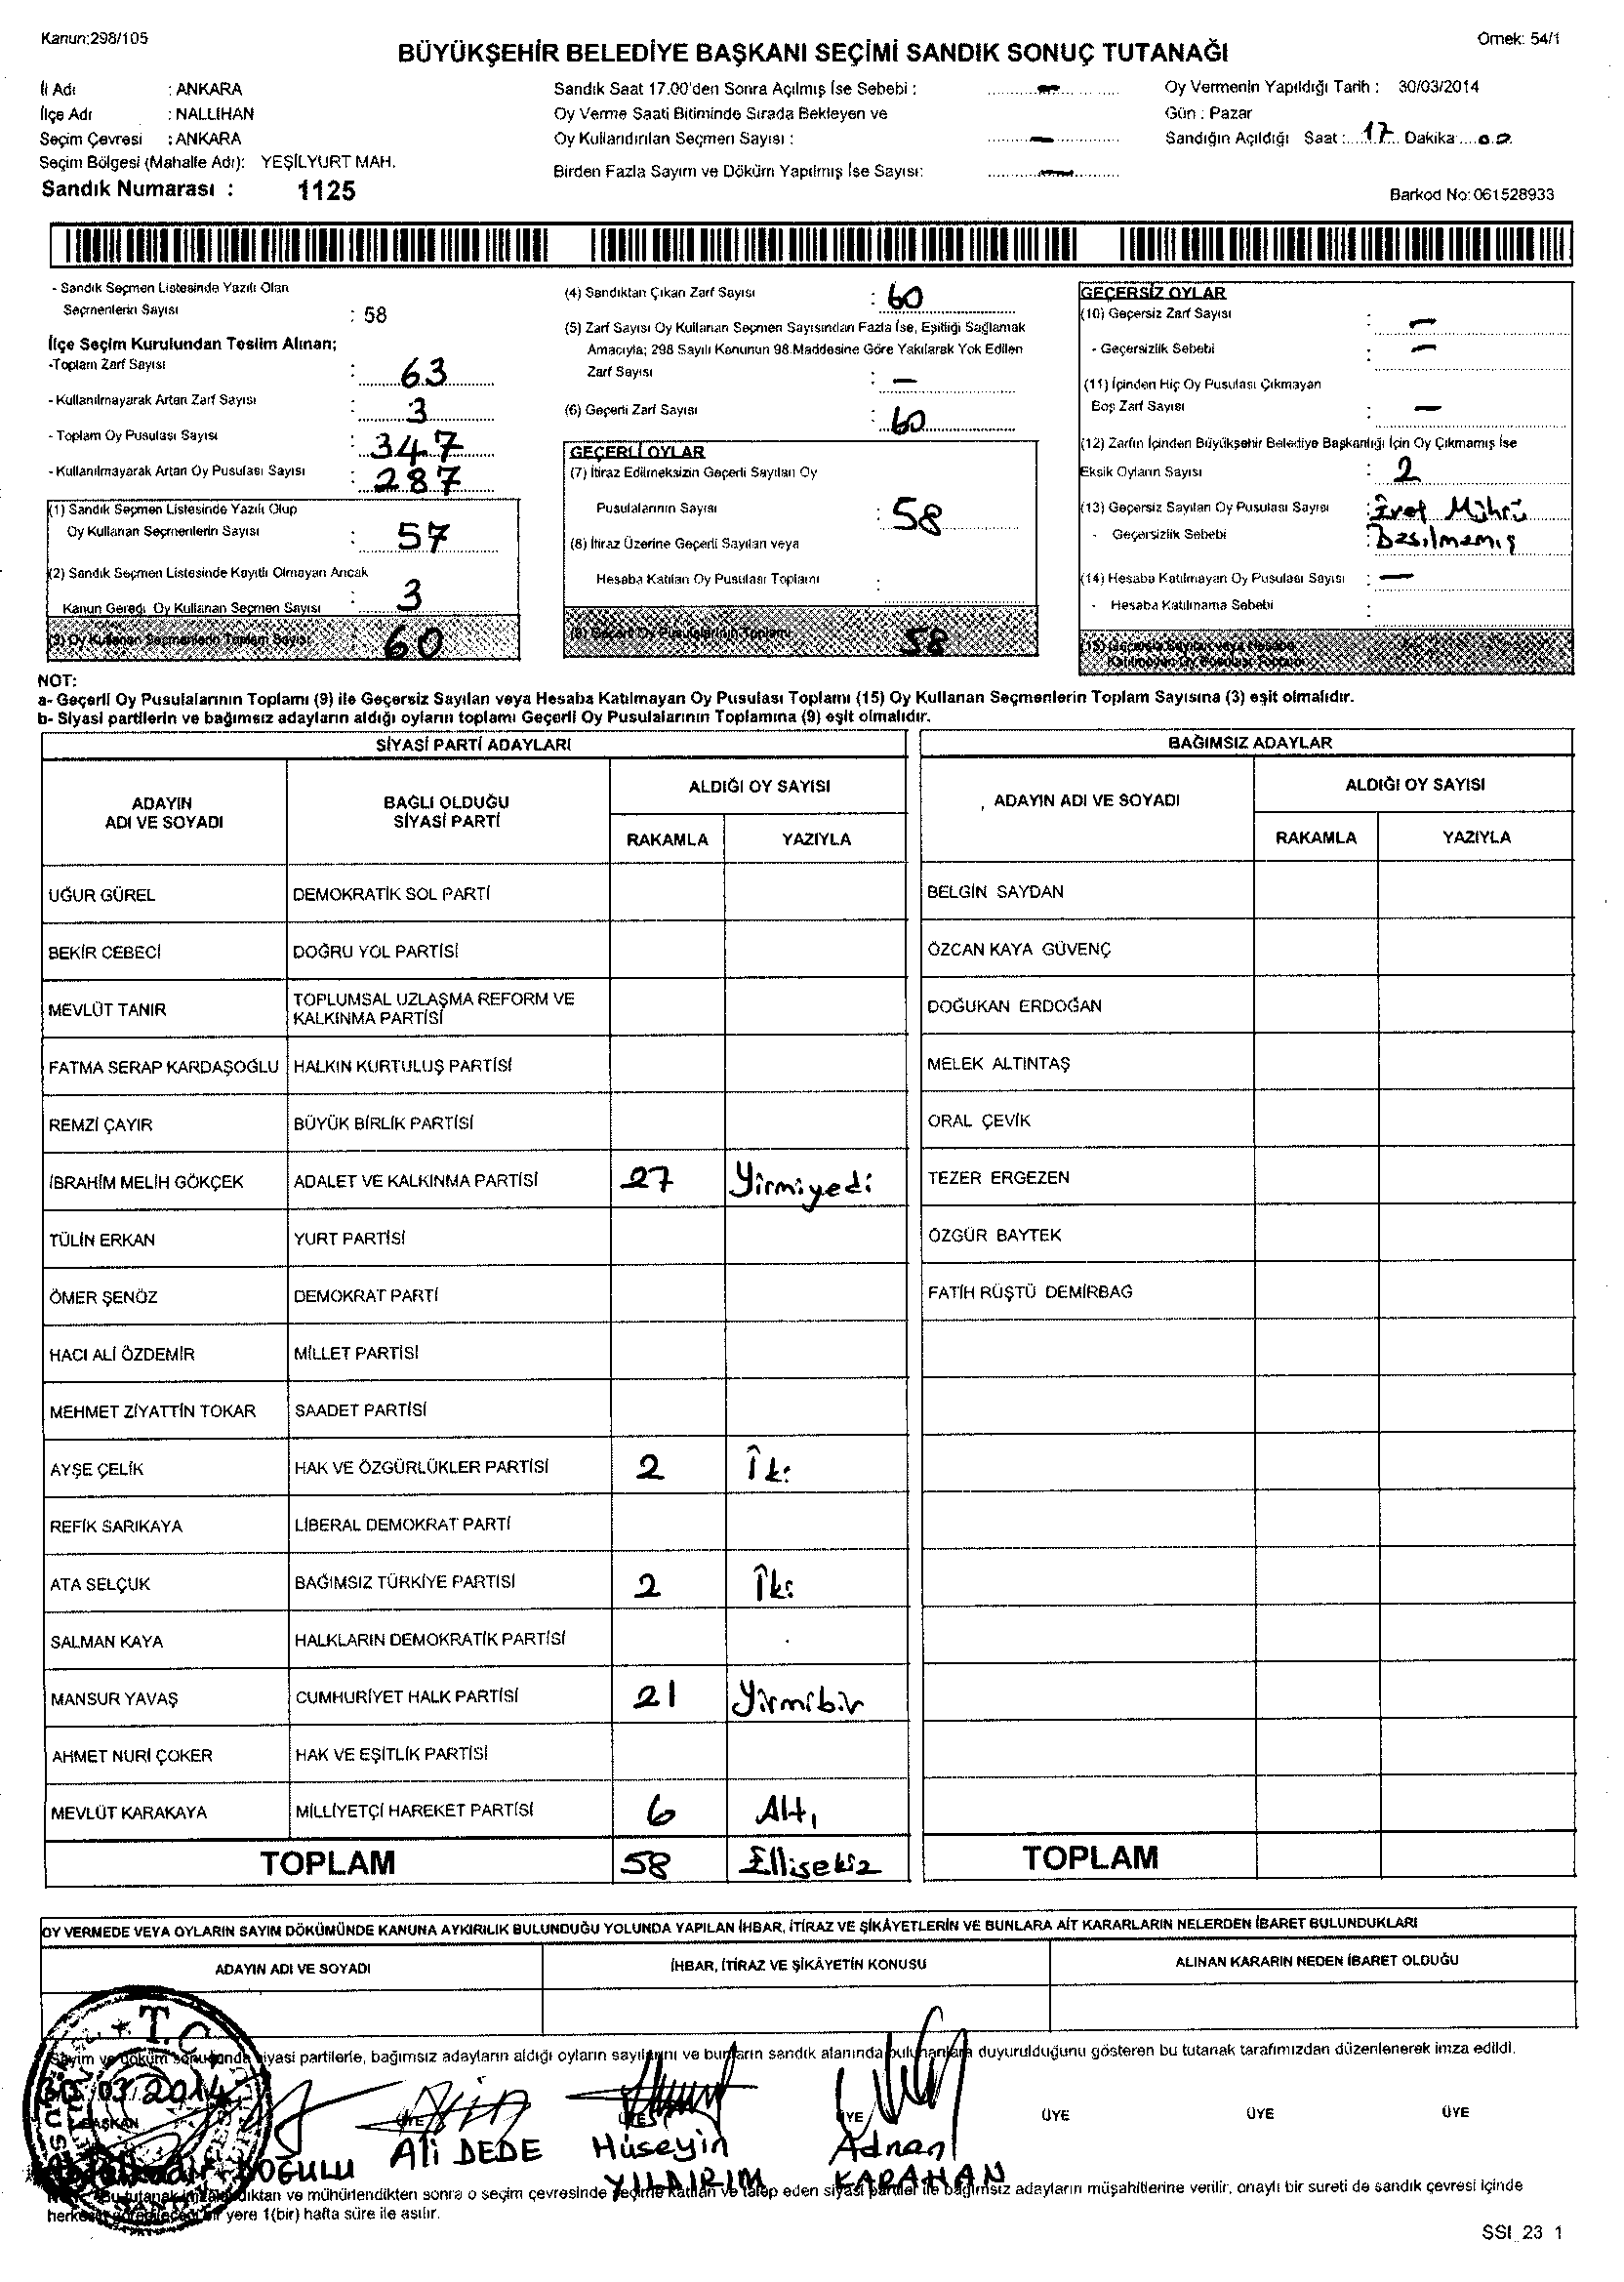 Kanun:298/105
BÜYÜKŞEHİR BELEDİYE BAŞKANI SEÇİMİ SANDIK SONUÇ TUTANAĞI
Örnek: 54/1
İl Adı : ANKARA
İlçe Adı : NALLIHAN
Seçim Çevresi : ANKARA
Seçim Bölgesi (Mahalle Adı): YEŞİLYURT MAH.
Sandık Numarası : 1125
Sandık Saat 17.00'den Sonra Açılmış İse Sebebi : —
Oy Verme Saati Bitiminde Sırada Bekleyen ve
Oy Kullandırılan Seçmen Sayısı : —
Birden Fazla Sayım ve Döküm Yapılmış İse Sayısı: —
Oy Vermenin Yapıldığı Tarih : 30/03/2014
Gün : Pazar
Sandığın Açıldığı Saat : 17 Dakika 00
Barkod No:061528933
- Sandık Seçmen Listesinde Yazılı Olan
Seçmenlerin Sayısı : 58
İlçe Seçim Kurulundan Teslim Alınan;
-Toplam Zarf Sayısı : 63
- Kullanılmayarak Artan Zarf Sayısı : 3
- Toplam Oy Pusulası Sayısı : 347
- Kullanılmayarak Artan Oy Pusulası Sayısı : 287
(1) Sandık Seçmen Listesinde Yazılı Olup
Oy Kullanan Seçmenlerin Sayısı : 57
(2) Sandık Seçmen Listesinde Kayıtlı Olmayan Ancak
Kanun Gereği Oy Kullanan Seçmen Sayısı : 3
(3) Oy Kullanan Seçmenlerin Toplam Sayısı : 60
(4) Sandıktan Çıkan Zarf Sayısı : 60
(5) Zarf Sayısı Oy Kullanan Seçmen Sayısından Fazla İse, Eşitliği Sağlamak
Amacıyla; 298 Sayılı Kanunun 98.Maddesine Göre Yakılarak Yok Edilen
Zarf Sayısı : —
(6) Geçerli Zarf Sayısı : 60
GEÇERLİ OYLAR
(7) İtiraz Edilmeksizin Geçerli Sayılan Oy
Pusulalarının Sayısı : 58
(8) İtiraz Üzerine Geçerli Sayılan veya
Hesaba Katılan Oy Pusulası Toplamı :
(9) Geçerli Oy Pusulalarının Toplamı 58
GEÇERSİZ OYLAR
(10) Geçersiz Zarf Sayısı : —
- Geçersizlik Sebebi : —
(11) İçinden Hiç Oy Pusulası Çıkmayan
Boş Zarf Sayısı : —
(12) Zarfın İçinden Büyükşehir Belediye Başkanlığı İçin Oy Çıkmamış İse
Eksik Oyların Sayısı : 2
(13) Geçersiz Sayılan Oy Pusulası Sayısı : Evet Mührü
- Geçersizlik Sebebi : Basılmamış
(14) Hesaba Katılmayan Oy Pusulası Sayısı : —
- Hesaba Katılmama Sebebi :
(15) Geçersiz Sayılan veya Hesaba
Katılmayan Oy Pusulası Toplamı
NOT:
a- Geçerli Oy Pusulalarının Toplamı (9) ile Geçersiz Sayılan veya Hesaba Katılmayan Oy Pusulası Toplamı (15) Oy Kullanan Seçmenlerin Toplam Sayısına (3) eşit olmalıdır.
b- Siyasi partilerin ve bağımsız adayların aldığı oyların toplamı Geçerli Oy Pusulalarının Toplamına (9) eşit olmalıdır.
SİYASİ PARTİ ADAYLARI
ADAYIN ADI VE SOYADI
BAĞLI OLDUĞU SİYASİ PARTİ
ALDIĞI OY SAYISI
RAKAMLA YAZIYLA
UĞUR GÜREL DEMOKRATİK SOL PARTİ
BEKİR CEBECİ DOĞRU YOL PARTİSİ
MEVLÜT TANIR TOPLUMSAL UZLAŞMA REFORM VE
KALKINMA PARTİSİ
FATMA SERAP KARDAŞOĞLU HALKIN KURTULUŞ PARTİSİ
REMZİ ÇAYIR BÜYÜK BİRLİK PARTİSİ
İBRAHİM MELİH GÖKÇEK ADALET VE KALKINMA PARTİSİ 27 Yirmiyedi
TÜLİN ERKAN YURT PARTİSİ
ÖMER ŞENÖZ DEMOKRAT PARTİ
HACI ALİ ÖZDEMİR MİLLET PARTİSİ
MEHMET ZİYATTİN TOKAR SAADET PARTİSİ
AYŞE ÇELİK HAK VE ÖZGÜRLÜKLER PARTİSİ 2 İki
REFİK SARIKAYA LİBERAL DEMOKRAT PARTİ
ATA SELÇUK BAĞIMSIZ TÜRKİYE PARTİSİ 2 İki
SALMAN KAYA HALKLARIN DEMOKRATİK PARTİSİ
MANSUR YAVAŞ CUMHURİYET HALK PARTİSİ 21 Yirmibir
AHMET NURİ ÇOKER HAK VE EŞİTLİK PARTİSİ
MEVLÜT KARAKAYA MİLLİYETÇİ HAREKET PARTİSİ 6 Altı
TOPLAM 58 Ellisekiz
BAĞIMSIZ ADAYLAR
ADAYIN ADI VE SOYADI
ALDIĞI OY SAYISI
RAKAMLA YAZIYLA
BELGİN SAYDAN
ÖZCAN KAYA GÜVENÇ
DOĞUKAN ERDOĞAN
MELEK ALTINTAŞ
ORAL ÇEVİK
TEZER ERGEZEN
ÖZGÜR BAYTEK
FATİH RÜŞTÜ DEMİRBAĞ
TOPLAM
OY VERMEDE VEYA OYLARIN SAYIM DÖKÜMÜNDE KANUNA AYKIRILIK BULUNDUĞU YOLUNDA YAPILAN İHBAR, İTİRAZ VE ŞİKÂYETLERİN VE BUNLARA AİT KARARLARIN NELERDEN İBARET BULUNDUKLARI
ADAYIN ADI VE SOYADI İHBAR, İTİRAZ VE ŞİKÂYETİN KONUSU ALINAN KARARIN NEDEN İBARET OLDUĞU
T.C.
Sayım ve döküm sonucunda siyasi partilerle, bağımsız adayların aldığı oyların sayılarını ve bunların sandık alanında bulunanlara duyurulduğunu gösteren bu tutanak tarafımızdan düzenlenerek imza edildi.
30.03.2014
BAŞKAN ÜYE ÜYE ÜYE ÜYE ÜYE ÜYE
DOĞULU Ali DEDE Hüseyin YILDIRIM Adnan KARAHAN
Bu tutanak imzalandıktan ve mühürlendikten sonra o seçim çevresinde seçime katılan ve talep eden siyasi partiler ile bağımsız adayların müşahitlerine verilir, onaylı bir sureti de sandık çevresi içinde
herkesin görebileceği bir yere 1(bir) hafta süre ile asılır.
SSI_23 1